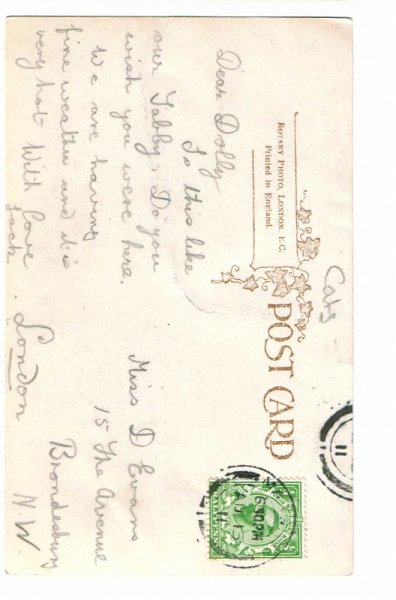 POST CARD
ROTARY PHOTO, LONDON. E.C.
Printed in England.
Cats
Dear Dolly
Is this like
our Tabby. Do you
wish you were here.
We are having
fine weather and it is
very hot With love
Jack.
Miss D Evans
15 The Avenue
Brondesbury
London
N.W.
6.40 PM
11